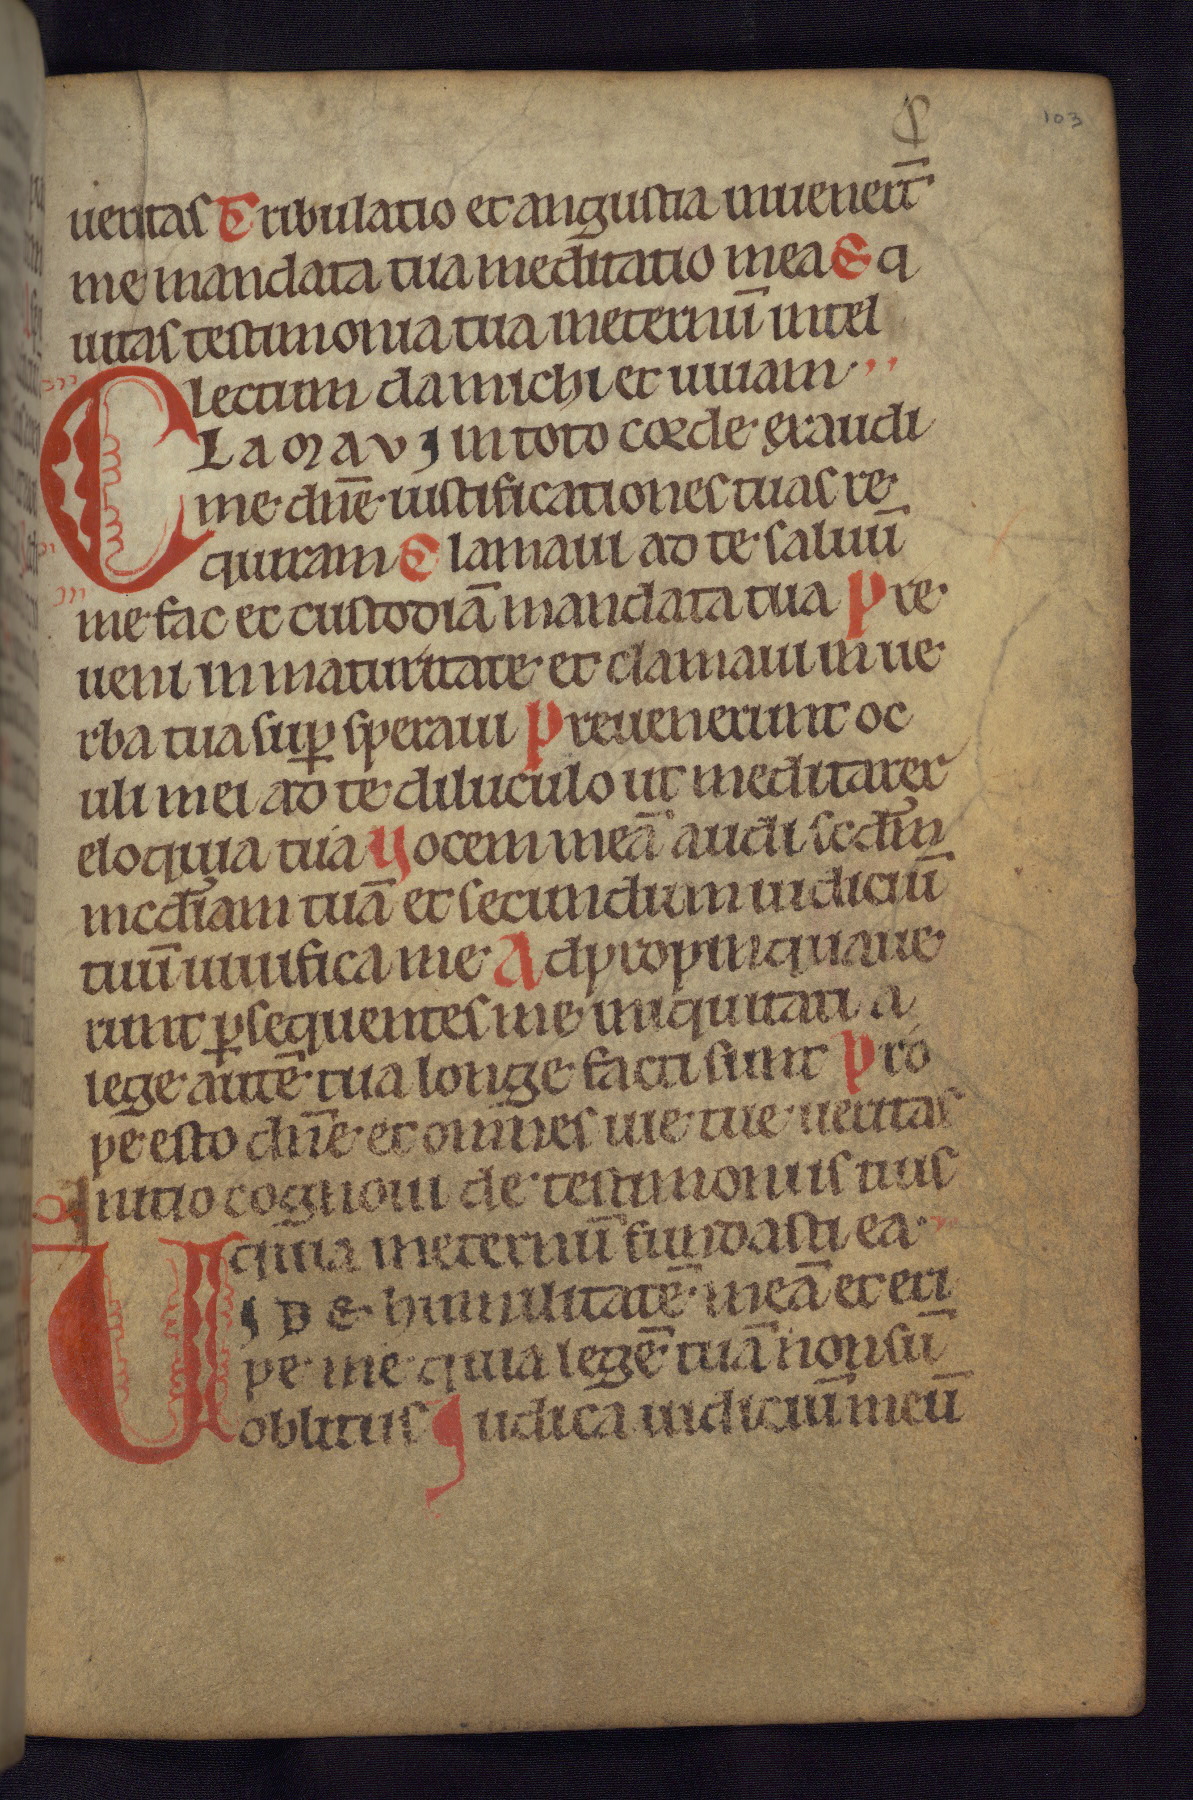 103
ueritas Tribulatio et angustia inuenert̄
me mandata tua meditatio mea Eq
uitas testimonia tua ineternū intel
lectum da michi et uiuam
CLAMAVI in toto corde exaudi
me dn̄e iustificationes tuas re
quiram Clamaui ad te saluū
me fac et custodiā mandata tua Pre
ueni in maturitate et clamaui in ue
rba tua suꝑ speraui Preuenerunt oc
uli mei ad te diluculo ut meditarer
eloquia tua Uocem meā audi scd̄m
mcd̄iam tuā et secundum iudiciū
tuū uiuifica me Adpropinquaue
runt ꝑsequentes me iniquitati a
lege autē tua longe facti sunt Pro
pe esto dn̄e et omnes uie tue ueritas
Initio cognoui de testimoniis tuis
quia ineternū fundasti ea
UIDE humilitatē meā et eri
pe me quia legē tuā non sū
oblitus Iudica iudiciū meū